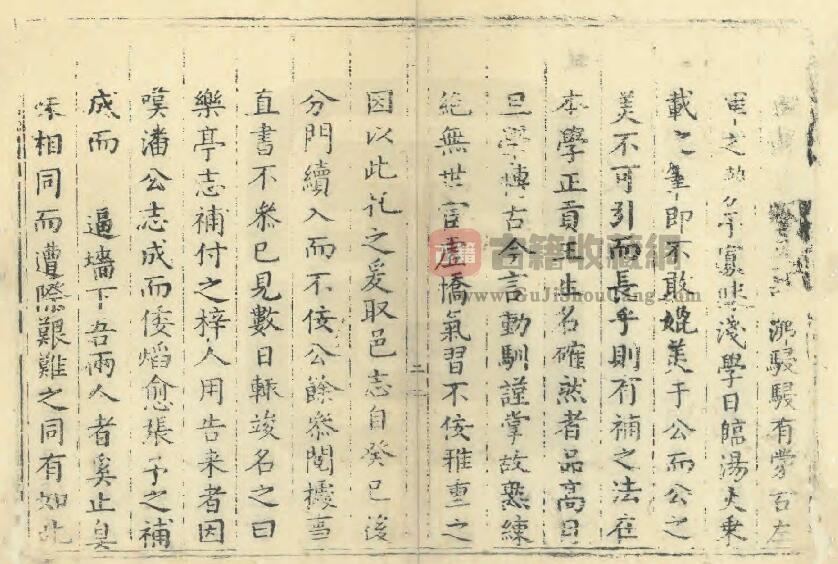 駸駸有蒙古左
之 寡昧淺學日臨湯火
載之筆即不敢媲美于公而公之
美不可引而長乎則有補之法在
本學正貢王生名確然者品高月
旦學博古今言動馴謹掌故熟練
絕無世宦虛憍氣習不佞雅重之
二
因以此托之爰取邑志自癸巳後
分門續入而不佞公餘叅閱據事
直書不叅已見數日輒竣名之曰
樂亭志補付之梓人用告来者因
嘆潘公志成而倭熖愈張予之補
成而 逼墻下吾兩人者奚止臭
味相同而遭際艱難之同有如此
古籍
古籍收藏網
www.GuJiShouCang.com